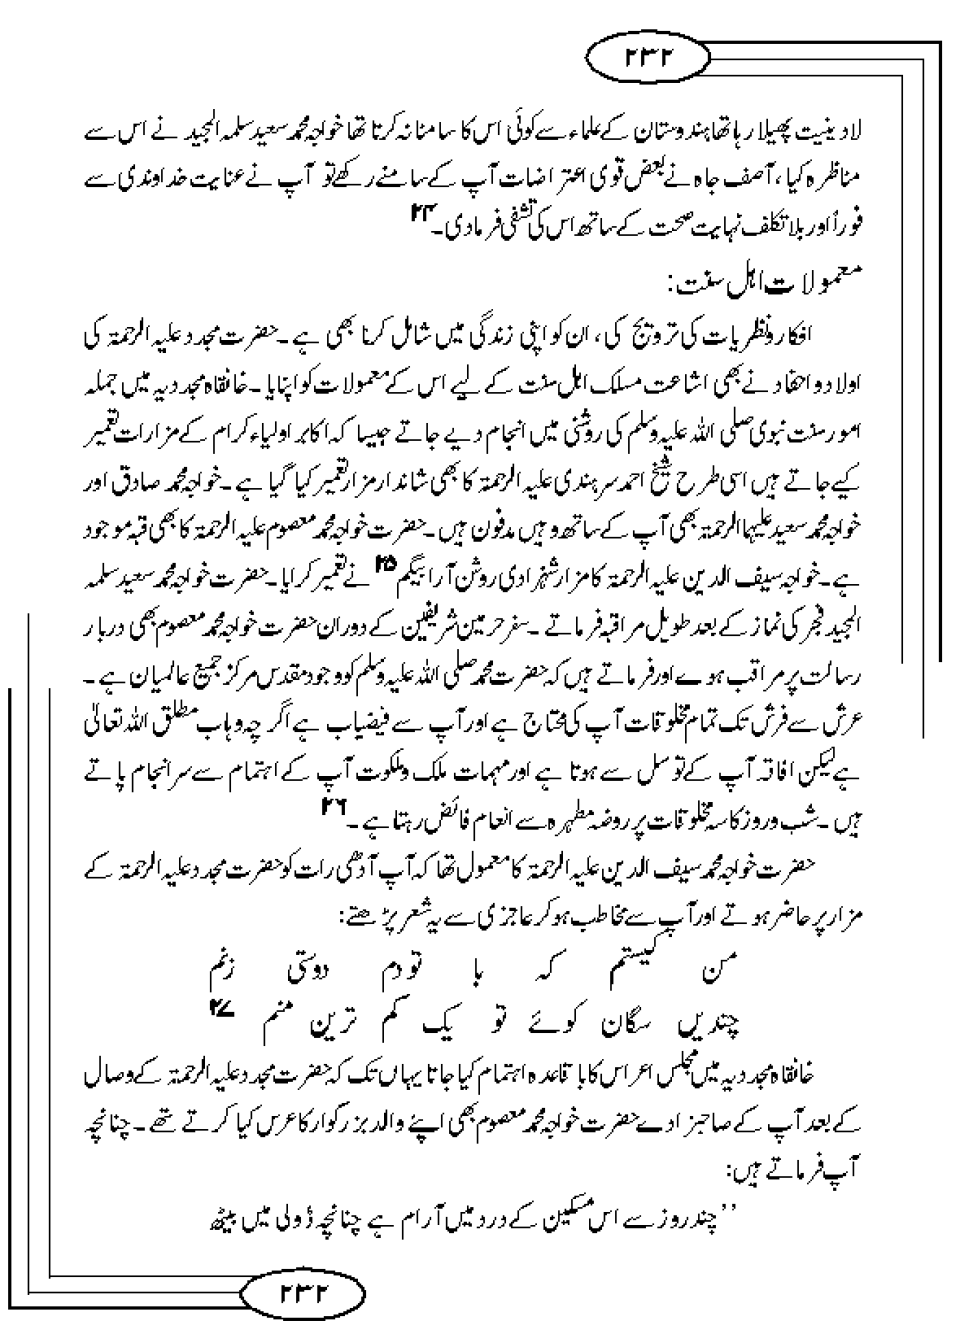 ۲۳۲
لادینیت پھیلا رہا تھا ہندوستان کے علماء سے کوئی اس کا سامنا نہ کرتا تھا خواجہ محمد سعید سلمہ المجید نے اس سے
مناظرہ کیا، آصف جاہ نے بعض قوی اعتراضات آپ کے سامنے رکھے تو آپ نے عنایت خداوندی سے
فوراً اور بلا تکلف نہایت صحت کے ساتھ اس کی تشفی فرما دی۔۲۴
معمولات اہل سنت:
افکار و نظریات کی ترویج کی، ان کو اپنی زندگی میں شامل کرنا بھی ہے۔ حضرت مجدد علیہ الرحمۃ کی
اولاد و احفاد نے بھی اشاعت مسلک اہل سنت کے لیے اس کے معمولات کو اپنایا۔ خانقاہ مجددیہ میں جملہ
امور سنت نبوی صلی اللہ علیہ وسلم کی روشنی میں انجام دیے جاتے جیسا کہ اکابر اولیاء کرام کے مزارات تعمیر
کیے جاتے ہیں اسی طرح شیخ احمد سرہندی علیہ الرحمۃ کا بھی شاندار مزار تعمیر کیا گیا ہے۔ خواجہ محمد صادق اور
خواجہ محمد سعید علیہا الرحمۃ بھی آپ کے ساتھ وہیں مدفون ہیں۔ حضرت خواجہ محمد معصوم علیہ الرحمۃ کا بھی قبہ موجود
ہے۔ خواجہ سیف الدین علیہ الرحمۃ کا مزار شہزادی روشن آرا بیگم۲۵ نے تعمیر کرایا۔ حضرت خواجہ محمد سعید سلمہ
المجید فجر کی نماز کے بعد طویل مراقبہ فرماتے۔ سفر حرمین شریفین کے دوران حضرت خواجہ محمد معصوم بھی دربار
رسالت پر مراقب ہوے اور فرماتے ہیں کہ حضرت محمد صلی اللہ علیہ وسلم کو وجود مقدس مرکز جمیع عالمیان ہے۔
عرش سے فرش تک تمام مخلوقات آپ کی محتاج ہے اور آپ سے فیضیاب ہے اگر چہ وہاب مطلق اللہ تعالیٰ
ہے لیکن افاقہ آپ کے توسل سے ہوتا ہے اور مہمات ملک و ملکوت آپ کے اہتمام سے سرانجام پاتے
ہیں۔ شب و روز کاسہ مخلوقات پر روضہ مطہرہ سے انعام فائض رہتا ہے۔۲۶
حضرت خواجہ محمد سیف الدین علیہ الرحمۃ کا معمول تھا کہ آپ آدھی رات کو حضرت مجدد علیہ الرحمۃ کے
مزار پر حاضر ہوتے اور آپ سے مخاطب ہو کر عاجزی سے یہ شعر پڑھتے:
من کیستم کہ با تو دم دوستی زنم
چندیں سگان کوئے تو یک کم ترین منم ۲۷
خانقاہ مجددیہ میں مجلس اعراس کا با قاعدہ اہتمام کیا جاتا یہاں تک کہ حضرت مجدد علیہ الرحمۃ کے وصال
کے بعد آپ کے صاحبزادے حضرت خواجہ محمد معصوم بھی اپنے والد بزرگوار کا عرس کیا کرتے تھے۔ چنانچہ
آپ فرماتے ہیں:
’’چند روز سے اس مسکین کے درد میں آرام ہے چنانچہ ڈولی میں بیٹھ
۲۳۲